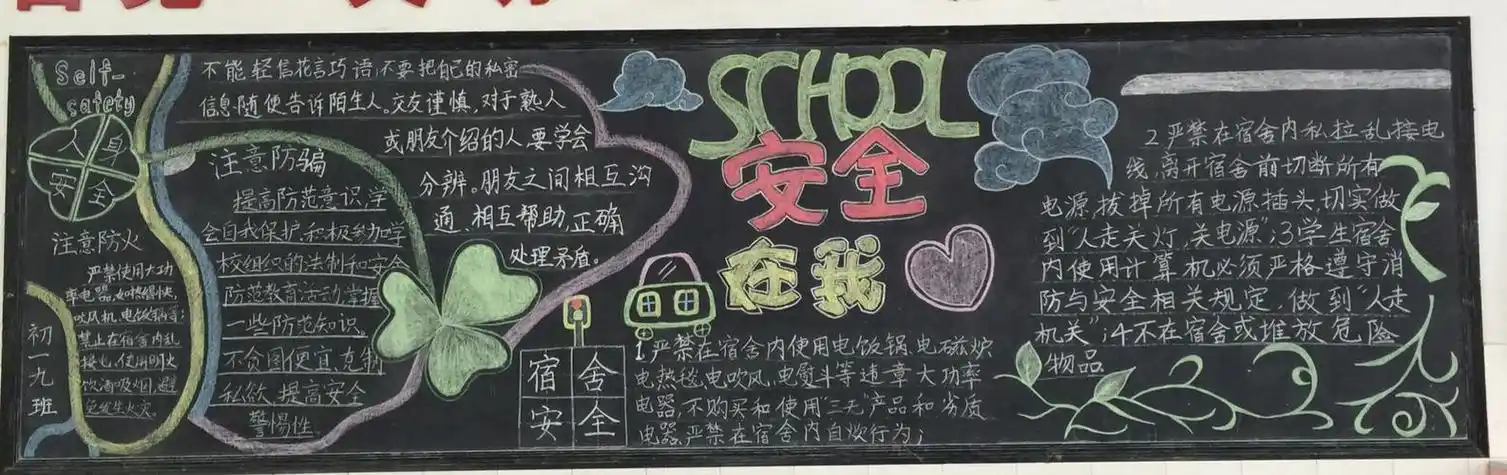 Self-
safety
人身
安全
注意防火
严禁使用大功
率电器,如热得快,
吹风机,电饭锅等;
禁止在宿舍内乱
接电,使用明火
饮酒吸烟,避
免发生火灾。
初一九班
不能轻信花言巧语,不要把自己的私密
信息随便告诉陌生人。交友谨慎,对于熟人
或朋友介绍的人要学会
分辨。朋友之间相互沟
通,相互帮助,正确
处理矛盾。
注意防骗
提高防范意识,学
会自我保护,积极参加学
校组织的法制和安全
防范教育活动,掌握
一些防范知识。
不贪图便宜,克制
私欲,提高安全
警惕性.
SCHOOL
安全
在我
宿舍
安全
1.严禁在宿舍内使用电饭锅、电磁炉
电热毯、电吹风、电熨斗等违章大功率
电器,不购买和使用“三无”产品和劣质
电器,严禁在宿舍内自炊行为;
2.严禁在宿舍内私拉乱接电
线,离开宿舍前切断所有
电源,拔掉所有电源插头,切实做
到“人走关灯,关电源”;3学生宿舍
内使用计算机必须严格遵守消
防与安全相关规定,做到“人走
机关”;4不在宿舍或堆放危险
物品.